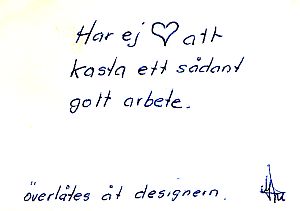 Har ej ♡ att
kasta ett sådant
gott arbete.
överlåtes åt designern.